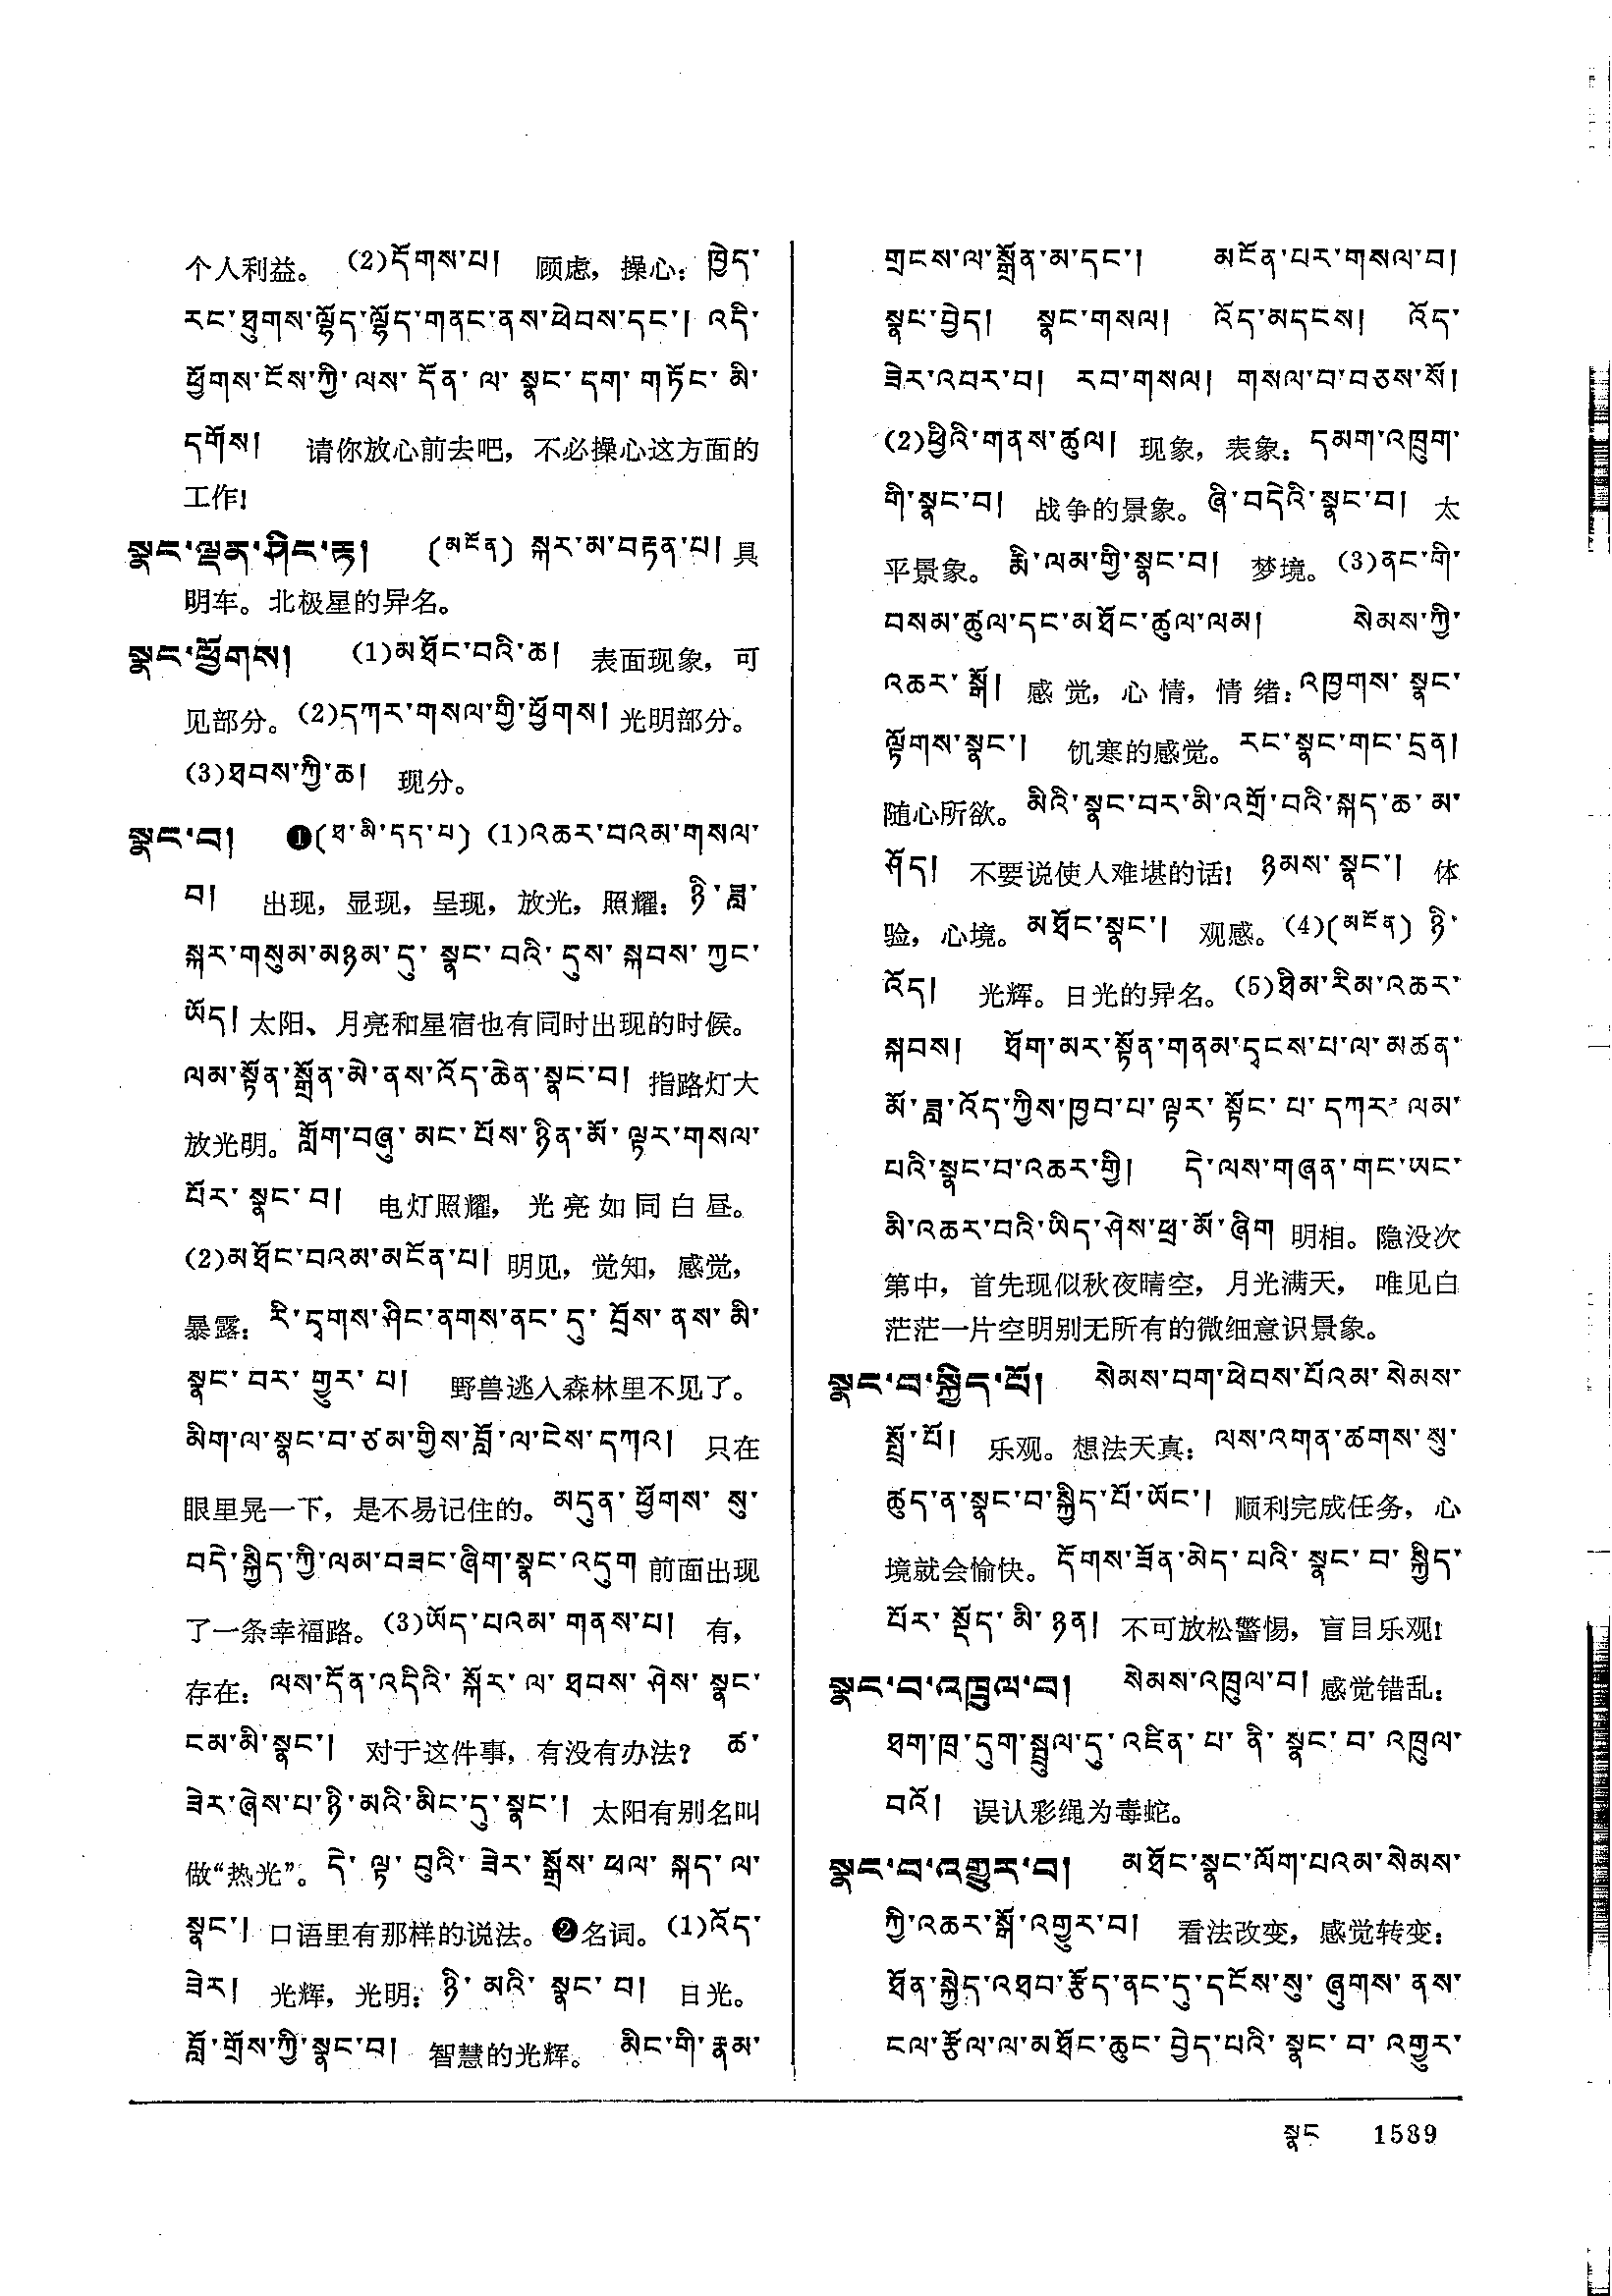 个人利益。 (2)དོགས་པ། 顾虑，操心：ཁྱེད་
རང་ཐུགས་ལྷོད་ལྷོད་གནང་ནས་ཕེབས་དང་། འདི་
ཕྱོགས་ངོས་ཀྱི་ལས་དོན་ལ་སྣང་དག་གཏོང་མི་
དགོས། 请你放心前去吧，不必操心这方面的
工作！
སྣང་ལྡན་ཤིང་རྟ། (མངོན) སྐར་མ་བརྟན་པ། 具
明车。北极星的异名。
སྣང་ཕྱོགས། (1)མཐོང་བའི་ཆ། 表面现象，可
见部分。(2)དཀར་གསལ་གྱི་ཕྱོགས། 光明部分。
(3)ཐབས་ཀྱི་ཆ། 现分。
སྣང་བ། ❶(ཐ་མི་དད་པ) (1)འཆར་བའམ་གསལ་
བ། 出现，显现，呈现，放光，照耀：ཉི་ཟླ་
སྐར་གསུམ་མཉམ་དུ་སྣང་བའི་དུས་སྐབས་ཀྱང་
ཡོད། 太阳、月亮和星宿也有同时出现的时候。
ལམ་སྟོན་སྒྲོན་མེ་ནས་འོད་ཆེན་སྣང་བ། 指路灯大
放光明。གློག་བཞུ་མང་པོས་ཉིན་མོ་ལྟར་གསལ་
པོར་སྣང་བ། 电灯照耀，光亮如同白昼。
(2)མཐོང་བའམ་མངོན་པ། 明见，觉知，感觉，
暴露：རི་དྭགས་ཤིང་ནགས་ནང་དུ་བྲོས་ནས་མི་
སྣང་བར་གྱུར་པ། 野兽逃入森林里不见了。
མིག་ལ་སྣང་བ་ཙམ་གྱིས་བློ་ལ་ངེས་དཀའ། 只在
眼里晃一下，是不易记住的。མདུན་ཕྱོགས་སུ་
བདེ་སྐྱིད་ཀྱི་ལམ་བཟང་ཞིག་སྣང་འདུག 前面出现
了一条幸福路。(3)ཡོད་པའམ་གནས་པ། 有，
存在：ལས་དོན་འདིའི་སྐོར་ལ་ཐབས་ཤེས་སྣང་
ངམ་མི་སྣང་། 对于这件事，有没有办法？ ཚ་
ཟེར་ཞེས་པ་ཉི་མའི་མིང་དུ་སྣང་། 太阳有别名叫
做“热光”。དེ་ལྟ་བུའི་ཟེར་སྒྲོས་ཕལ་སྐད་ལ་
སྣང་། 口语里有那样的说法。❷名词。(1)འོད་
ཟེར། 光辉，光明：ཉི་མའི་སྣང་བ། 日光。
བློ་གྲོས་ཀྱི་སྣང་བ། 智慧的光辉。 མིང་གི་རྣམ་
གྲངས་ལ་སྒྲོན་མ་དང་། མངོན་པར་གསལ་བ།
སྣང་བྱེད། སྣང་གསལ། འོད་མདངས། འོད་
ཟེར་འབར་བ། རབ་གསལ། གསལ་བ་བཅས་སོ།
(2)ཕྱིའི་གནས་ཚུལ། 现象，表象：དམག་འཁྲུག་
གི་སྣང་བ། 战争的景象。ཞི་བདེའི་སྣང་བ། 太
平景象。 རྨི་ལམ་གྱི་སྣང་བ། 梦境。(3)ནང་གི་
བསམ་ཚུལ་དང་མཐོང་ཚུལ་ལམ། སེམས་ཀྱི་
འཆར་སྒོ། 感觉，心情，情绪：འཁྱགས་སྣང་
ལྟོགས་སྣང་། 饥寒的感觉。རང་སྣང་གང་དྲན།
随心所欲。མིའི་སྣང་བར་མི་འགྲོ་བའི་སྐད་ཆ་མ་
ཤོད། 不要说使人难堪的话！ ཉམས་སྣང་། 体
验，心境。མཐོང་སྣང་། 观感。(4)(མངོན) ཉི་
འོད། 光辉。日光的异名。(5)ཐིམ་རིམ་འཆར་
སྐབས། ཐོག་མར་སྟོན་གནམ་དྭངས་པ་ལ་མཚན་
མོ་ཟླ་འོད་ཀྱིས་ཁྱབ་པ་ལྟར་སྟོང་པ་དཀར་ལམ་
པའི་སྣང་བ་འཆར་གྱི། དེ་ལས་གཞན་གང་ཡང་
མི་འཆར་བའི་ཡིད་ཤེས་ཕྲ་མོ་ཞིག 明相。隐没次
第中，首先现似秋夜晴空，月光满天，唯见白
茫茫一片空明别无所有的微细意识景象。
སྣང་བ་སྐྱིད་པོ། སེམས་བག་ཕེབས་པོའམ་སེམས་
སྤྲོ་པོ། 乐观。想法天真：ལས་འགན་ཚགས་སུ་
ཚུད་ན་སྣང་བ་སྐྱིད་པོ་ཡོང་། 顺利完成任务，心
境就会愉快。དོགས་ཟོན་མེད་པའི་སྣང་བ་སྐྱིད་
པོར་སྡོད་མི་ཉན། 不可放松警惕，盲目乐观！
སྣང་བ་འཁྲུལ་བ། སེམས་འཁྲུལ་བ། 感觉错乱：
ཐག་ཁྲ་དུག་སྦྲུལ་དུ་འཛིན་པ་ནི་སྣང་བ་འཁྲུལ་
བའོ། 误认彩绳为毒蛇。
སྣང་བ་འགྱུར་བ། མཐོང་སྣང་ལོག་པའམ་སེམས་
ཀྱི་འཆར་སྒོ་འགྱུར་བ། 看法改变，感觉转变：
ཐོན་སྐྱེད་འཐབ་རྩོད་ནང་དུ་དངོས་སུ་ཞུགས་ནས་
ངལ་རྩོལ་ལ་མཐོང་ཆུང་བྱེད་པའི་སྣང་བ་འགྱུར་
སྣང 1539